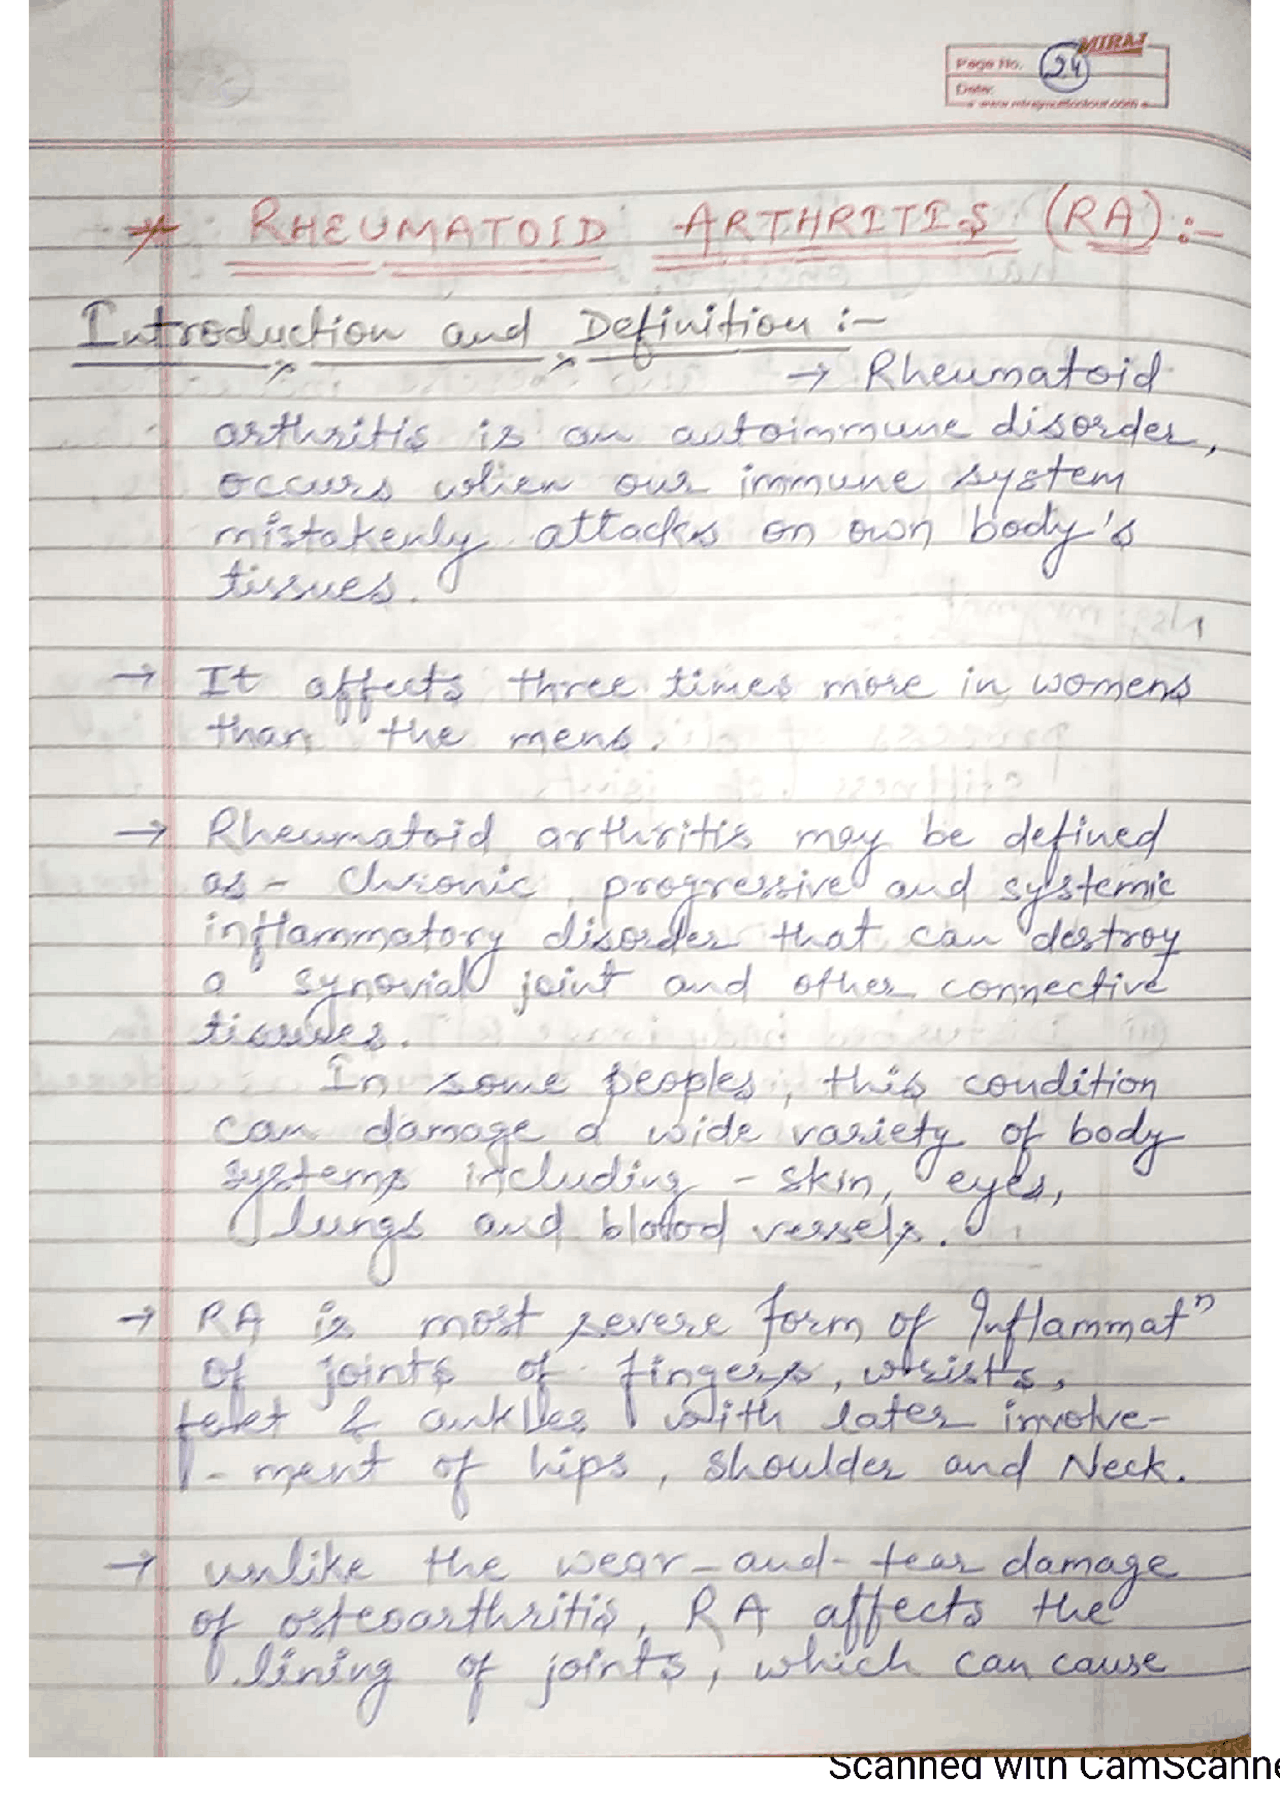 MIRAJ
Page No. 24
Date:
* RHEUMATOID ARTHRITIS (RA) :-
Introduction and Definition :-
→ Rheumatoid
arthritis is an autoimmune disorder,
occurs when our immune system
mistakenly attacks on own body's
tissues.
→ It affects three times more in womens
than the mens.
→ Rheumatoid arthritis may be defined
as - Chronic, progressive and systemic
inflammatory disorder that can destroy
a synovial joint and other connective
tissues.
In some peoples, this condition
can damage a wide variety of body
systems including - skin, eyes,
lungs and blood vessels.
→ RA is most severe form of Inflammatⁿ
of joints of fingers, wrists,
feet & ankles with later involve-
-ment of hips, shoulder and Neck.
→ unlike the wear-and-tear damage
of osteoarthritis, RA affects the
lining of joints, which can cause
Scanned with CamScanne